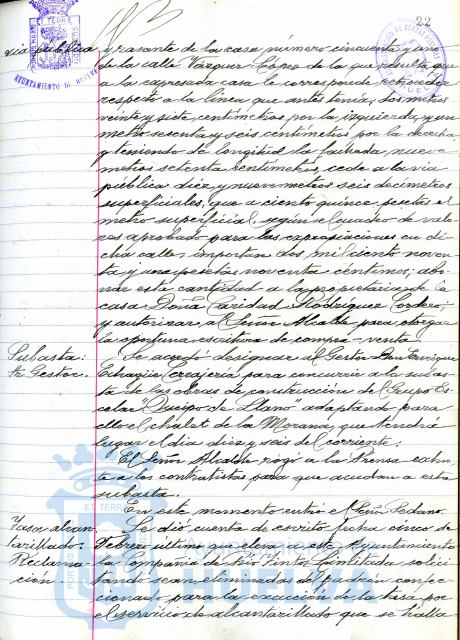 22
via pública
y rasante de la casa número cincuenta y uno
de la calle Vázquez López de la que resulta que
a la expresada casa le corresponde retroceder
respecto a la línea que antes tenía, dos metros
veinte y siete centímetros por la izquierda, y un
metro sesenta y seis centímetros por la derecha,
y teniendo de longitud la fachada nueve
metros setenta centímetros, cede a la via
pública diez y nueve metros seis decímetros
superficiales, que a ciento quince pesetas el
metro superficial, según el cuadro de valo-
res aprobado para las expropiaciones en di-
cha calle, importan dos mil ciento noven-
ta y una pesetas noventa céntimos; abo-
nar esta cantidad a la propietaria de la
casa Doña Caridad Rodríguez Cordero;
y autorizar al Señor Alcalde para otorgar
la oportuna escritura de compra-venta
Subasta:
Gestor.
Se acordó designar al Gestor Don Enrique
Echagüe Cerajería para concurrir a la subas-
ta de las obras de construcción del Grupo Es-
colar "Queipo de Llano" adaptando para
ello el chalet de la Morana, que tendrá
lugar el día diez y seis del corriente;
El Señor Alcalde rogó a la Prensa exhor-
te a los contratistas para que acudan a esta
subasta.
En este momento entró el Señor Sedano.
Tasa alcan-
tarillado.
Reclama-
ción.
Se dió cuenta de escrito fecha cinco de
Febrero último que eleva a este Ayuntamiento
la Compañía de Rio Tinto Limitada solici-
tando sean eliminadas del padrón confec-
cionado para la exacción de la tasa por
el servicio de alcantarillado que se halla
Ayuntamiento de
HUELVA
AYUNTAMIENTO DE HUELVA